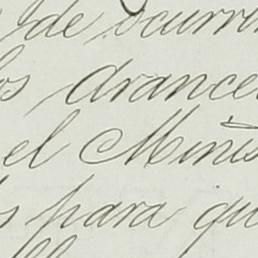 de ocurri
los arance
el Minis
s para qu